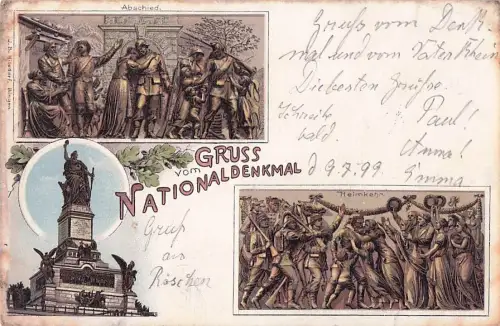 Abschied.
Gruss vom Denk-
mal und vom Vater Rhein
Die besten Grüsse
Schreibe
bald.
Paul!
Anna!
Emma
d 9.7.99.
GRUSS
vom
NATIONALDENKMAL
Heimkehr.
Gruß
an
Röschen